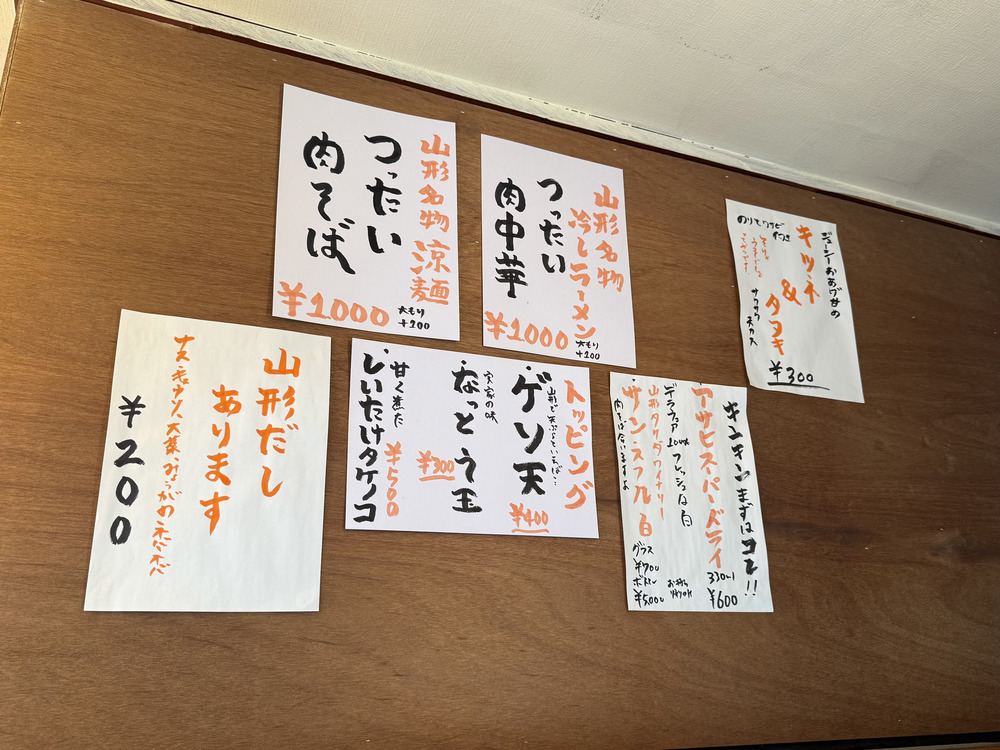 山形名物 涼麺
つったい
肉そば
¥1000
大もり
+200
山形名物
冷しラーメン
つったい
肉中華
¥1000
大もり
+200
ジューシーおあげ甘め
キツネ
&
タヌキ
¥300
のりとワサビ
付き
サクサク
山形だし
あります
¥200
トッピング
山形で天ぷらといえば…
・ゲソ天
¥400
実家の味
・なっとう玉
¥300
甘く煮た
・しいたけタケノコ
¥500
キンキンまずはコレ!!
アサヒスーパードライ
330ml
¥600
デラウェア 100% フレッシュな白
山形タケダワイナリー
サン・スフル 白
肉そばに合いますよ
グラス
¥700
ボトル
¥5,000